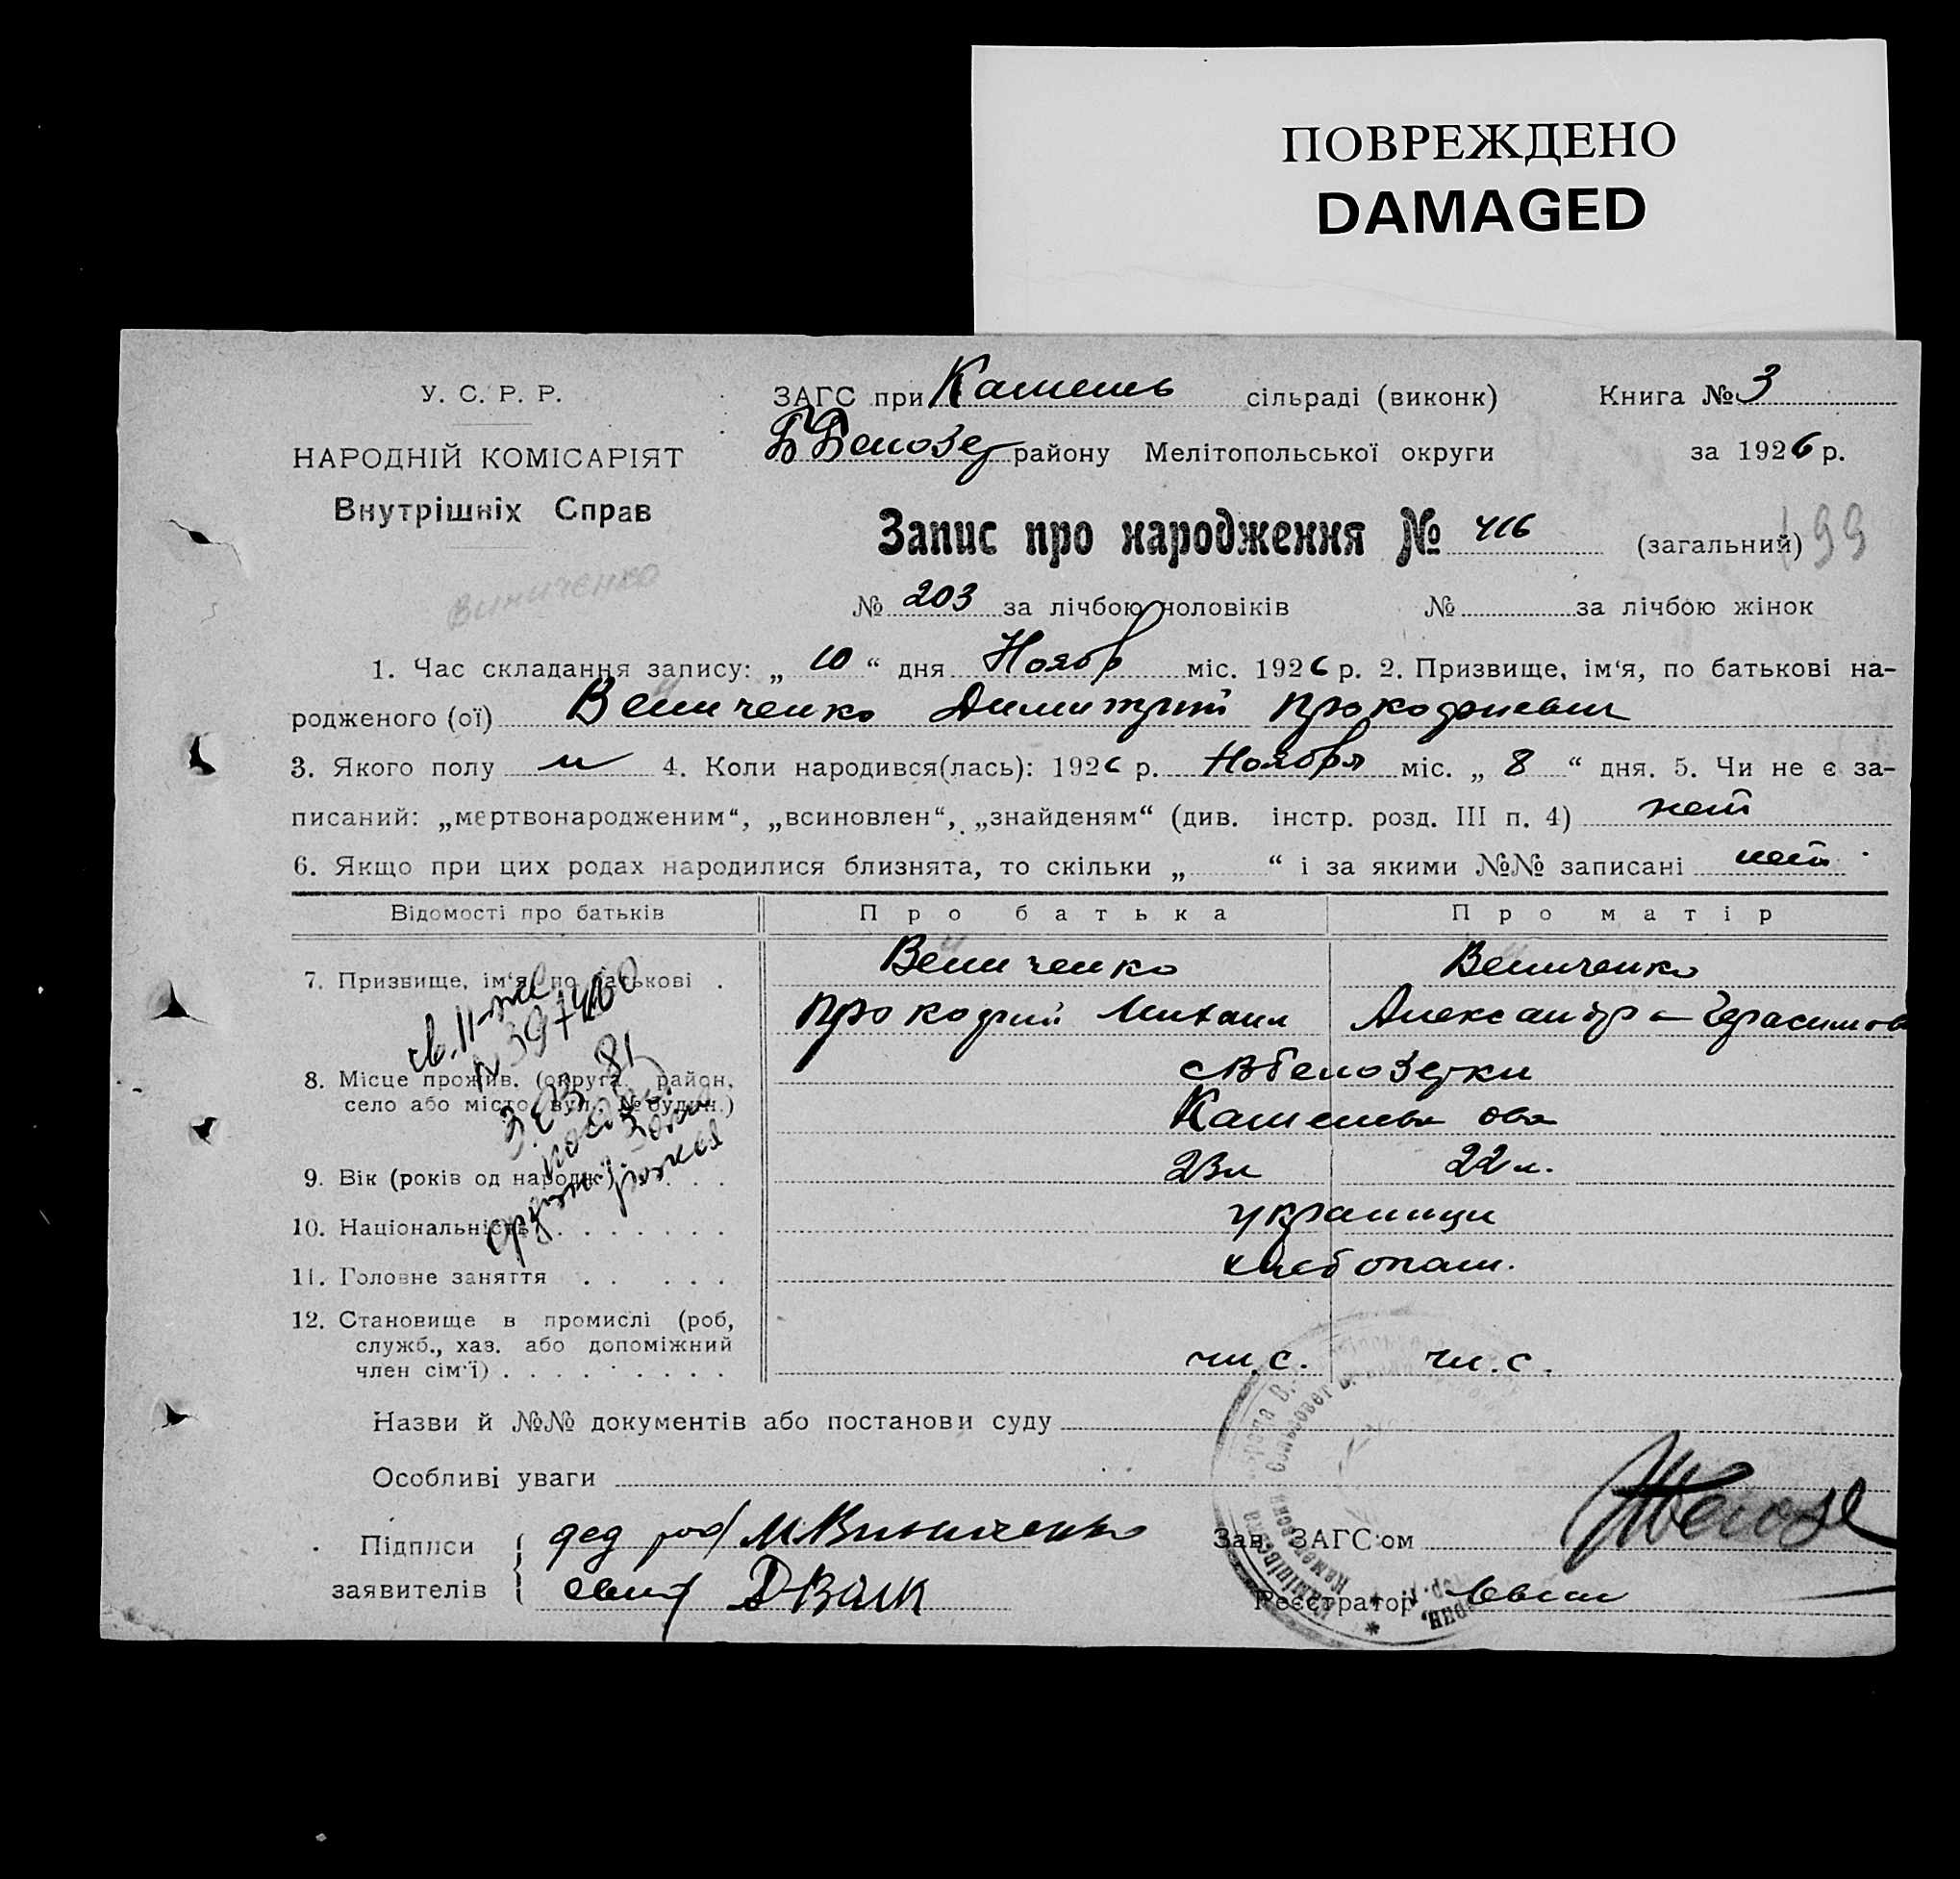 ПОВРЕЖДЕНО
DAMAGED
У. С. Р. Р.
НАРОДНІЙ КОМІСАРІЯТ
Внутрішніх Справ
Виниченко
ЗАГС при Камешь сільраді (виконк) Книга № 3
Б Белозер району Мелітопольської округи за 1926 р.
Запис про народження № 416 (загальний) 199
№ 203 за лічбою чоловіків № за лічбою жінок
1. Час складання запису: „ 10 “ дня Ноябр міс. 1926 р. 2. Призвище, ім‘я, по батькові на-
родженого (ої) Вениченко Димитрий Прокофиевич
3. Якого полу м 4. Коли народився(лась): 1926 р. Ноября міс. „ 8 “ дня. 5. Чи не є за-
писаний: „мертвонародженим“, „всиновлен“, „знайденям“ (див. інстр. розд. III п. 4) нет
6. Якщо при цих родах народилися близнята, то скільки „ “ і за якими №№ записані нет
Відомості про батьків Про батька Про матір
7. Призвище, ім‘я, по батькові . Вениченко Вениченко
Прокофий Михаил Александра Герасимов
8. Місце прожив. (округа, район, Белозерки
село або місто, вул., № будин.) Камешев
9. Вік (років од народж.) . . . 23 л 22 л.
10. Національність . . . . . . . украинци
11. Головне заняття . . . . . хлебопаш.
12. Становище в промислі (роб,
служб., хаз. або допоміжний
член сім‘ї) . . . . . . . . . чл. с. чл. с.
Назви й №№ документів або постанови суду
Особливі уваги
Підписи дед М Виниченко Зав. ЗАГС‘ом
заявителів Реєстратор